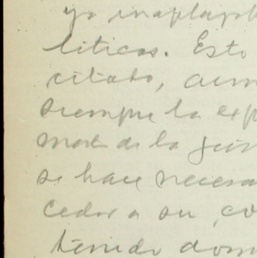 yo inaplaz
liticos. Esto
citado, aun
siempre la exp
mas de la
se hace necesa
cedor a su co
tenido dom